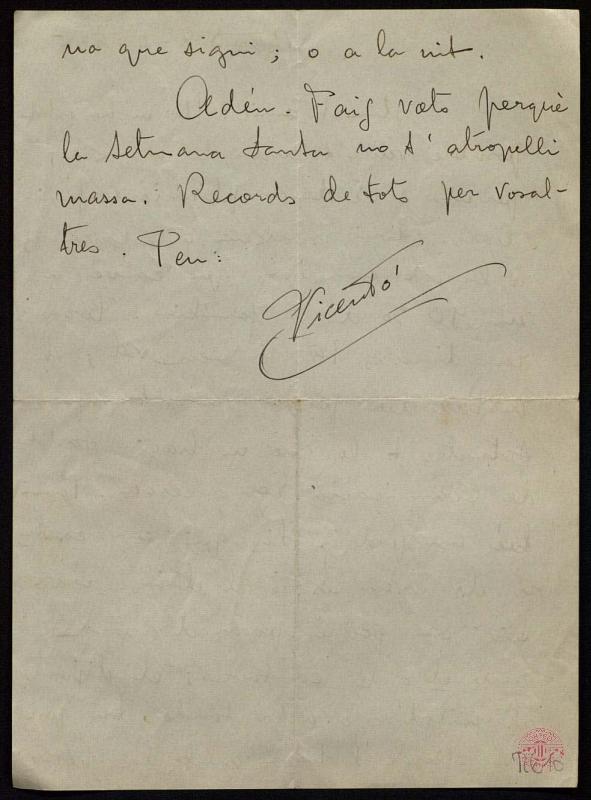 na que sigui; o a la nit.
Adéu. Faig vots perquè
la Setmana Santa no t'atropelli
massa. Records de tots per vosal-
tres. Teu:
Vicentó